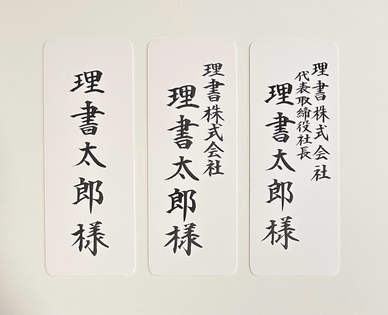 理書太郎様
理書株式会社
理書太郎様
理書株式会社
代表取締役社長
理書太郎様